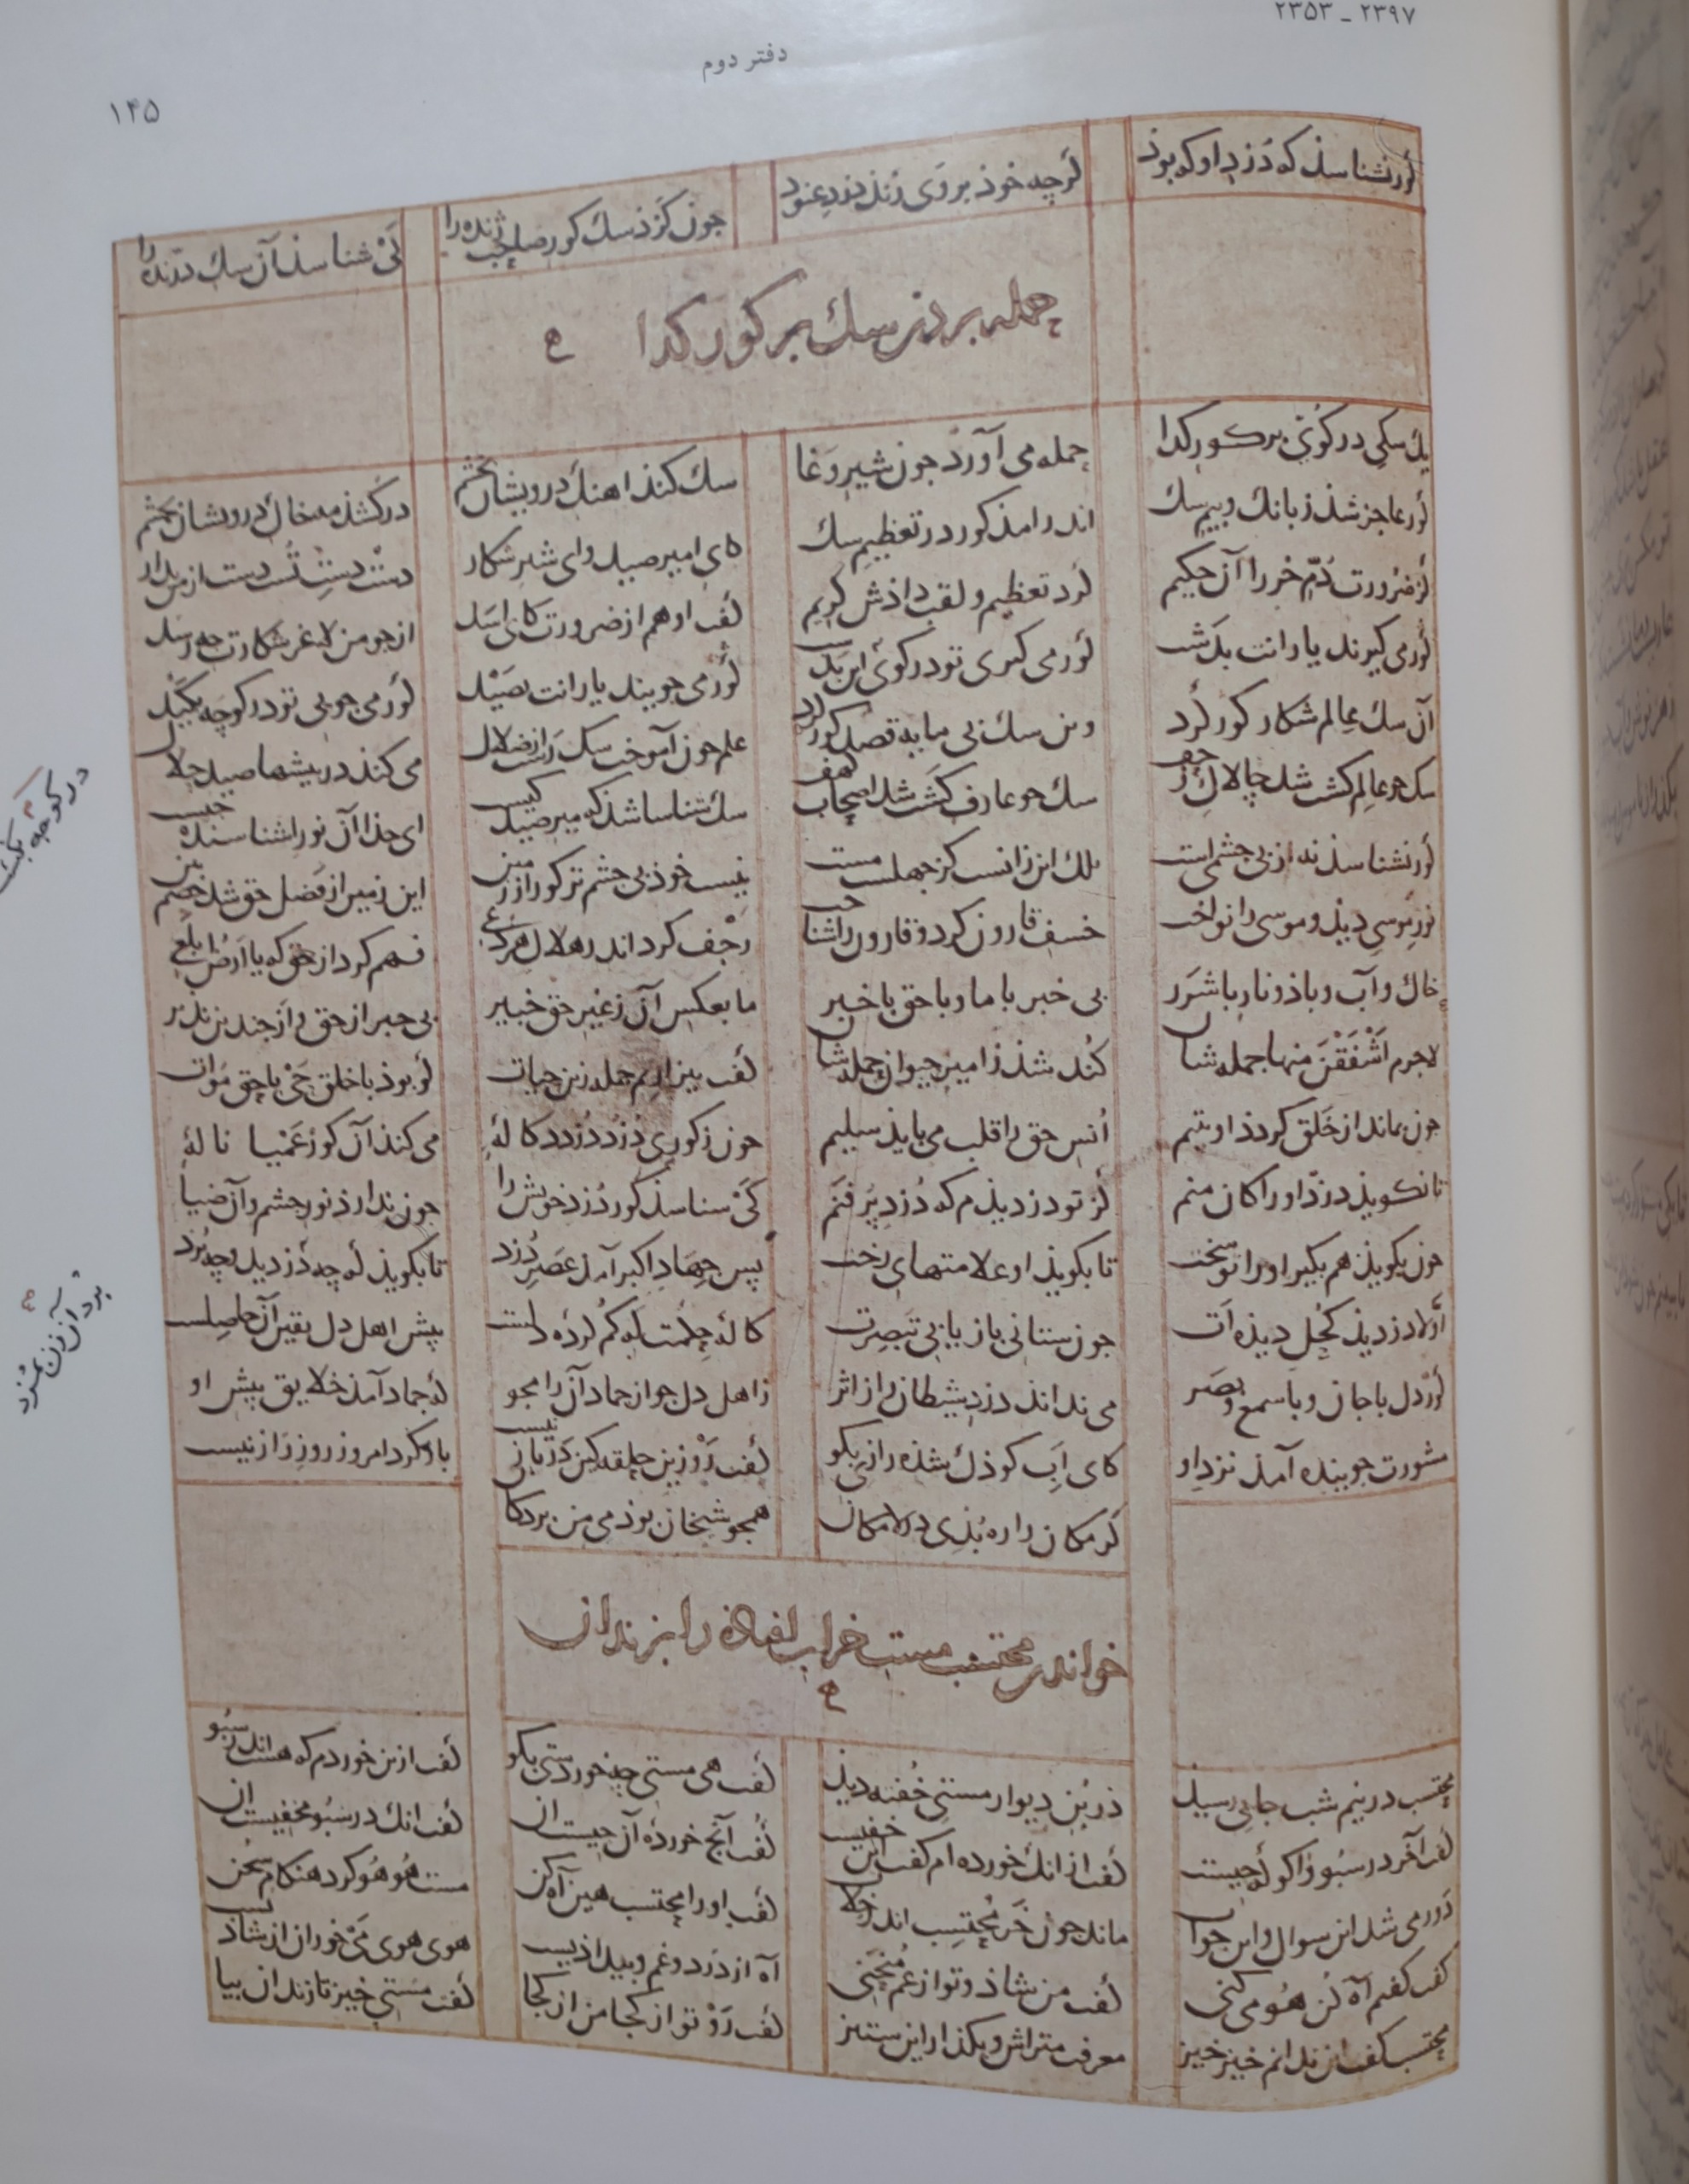 ۲۳۵۳ - ۲۳۹۷
دفتر دوم
۱۴۵
کور نشناسذ که دُزدِ او که بوذ گرچه خوذ بر وَی زند دزدِ عنود جون کَزذ سک کور صاحب ژنده را کَیْ شناسذ آن سک درنده را
حمله بردن سک بر کور کدا
یک سکی در کویی بر کور کدا حمله می آورد جون شیر وَغا سک کند اهنک درویشان بخشم در کشد مه خاک درویشان بچشم
کور عاجز شذ ز بانک و بیم سک اندر امذ کور در تعظیم سک کای امیر صید وای شیر شکار دست دستِ تُست دست از من بدار
کز ضرورت دُمّ خر را آن حکیم کرد تعظیم و لقب داذش کریم کفت او هم از ضرورت کای اسد از جو من لاغر شکارت جه رسد
کور می کیرند یارانت بدَشت کور می کیری تو در کوی این بَدست کور می جویند یارانت بصَیْد کور می جویی تو در کوجه بکَیْد
آن سک عالِم شکار کور کرد وین سک بی مایه قصد کور کرد علم جون آموخت سک رَست از ضلال می کند در بیشها صید حلال
سک جو عالِم کشت شد چالاک زحف سک جو عارف کشت شد اصحاب کهف سک شناسا شذ که میر صید کیست ای خذا آن نور اشناسنده جیست
کور نشناسذ نه از بی جشمی است بلک این زانست کز جهلست مست نیست خوذ بی جشم تر کور از زمین این زمین از فضل حق شد خصم بین
نورِ مُوسِی دیذ و موسی را نواخت خسف قارون کرد و قارون را شناخت رَجْف کرد اندر هلاک هر دعی فهم کرد از حق که یا اَرضُ ابلعی
خاک و آب و باذ و نارِ با شرَر بی خبر با ما و با حق با خبر ما بعکس آن ز غیر حق خبیر بی خبر از حق و از جندین نذیر
لاجرم اَشْفَقْنَ منها جمله شان کُند شذ ز امیزِ حیوان حمله شان کفت بیزاریم جمله زین حیات کو بوذ با خلق حَیْ با حق مَوات
جون بماند از خَلق کردذ او یتیم اُنسِ حق را قلب می بایذ سلیم جون ز کوری دُزد دُزدد کالهٔ می کنذ آن کورِ عَمْیا نالهٔ
تا نکویذ دزد او را کان منم کز تو دزدیذم که دُزدِ پُر فَنَم کَیْ شناسذ کور دُزدِ خویش را جون نذارذ نور جشم و آن ضیا
جون بکویذ هم بکیر او را تو سَخت تا بکویذ او علامتهای رخت پس جِهادِ اکبر آمذ عَصرِ دُزد تا بکویذ که چه دُزدیذ و چه بُرد
اَوّلا دزدیذ کُحلِ دیذه اَت جون ستانی باز یابی تَبصِرت کالهٔ حِکمَت که کُم کردهٔ دلست پیش اهل دل یقین آن حاصلست
کور دل با جان و با سمع و بَصَر می نذانذ دزدِ شیطان را ز اثر ز اهل دل جو از جماد آن را مجو که جماد آمذ خلایق پیش او
مشورت جوینده آمذ نزدِ او کای اَبِ کوذک شذه رازی بکو کفت رَوْ زین حلقه کین در باز نیست باز کرد امروز روزِ راز نیست
کر مکان را ره بُدی در لامکان همجو شیخان بوذمی من بر دکان
خواندن محتسب مستِ خراب افتاذه را بزندان
محتسب در نیم شب جایی رسید در بُنِ دیوار مستی خُفته دیذ کفت هی مستی چه خوردستی بکو کفت ازین خوردم که هست اندر سبُو
کفت آخر در سبُو واکو که جیست کفت از انک خورده ام کفت این خفیست کفت آنج خوردهٔ آن جیست ان کفت انک در سبُو مخفیست ان
دَور می شد این سوال و این جواب ماند جون خر مُحتسِب اندر خلاب کفت او را محتسب هین آه کن مست هُو هُو کرد هنکام سخن
کفت کفتم آه کُن هُو می کنی کفت من شاذ و تو از غم مُنحَنی آه از دَرد و غم و بیدادیست هوی هوی مَیْ خوران از شاذیست
محتسب کفت این ندانم خیز خیز معرفت متراش و بکذار این ستیز کفت رَوْ تو از کجا من از کجا کفت مَستی خیز تا زندان بیا